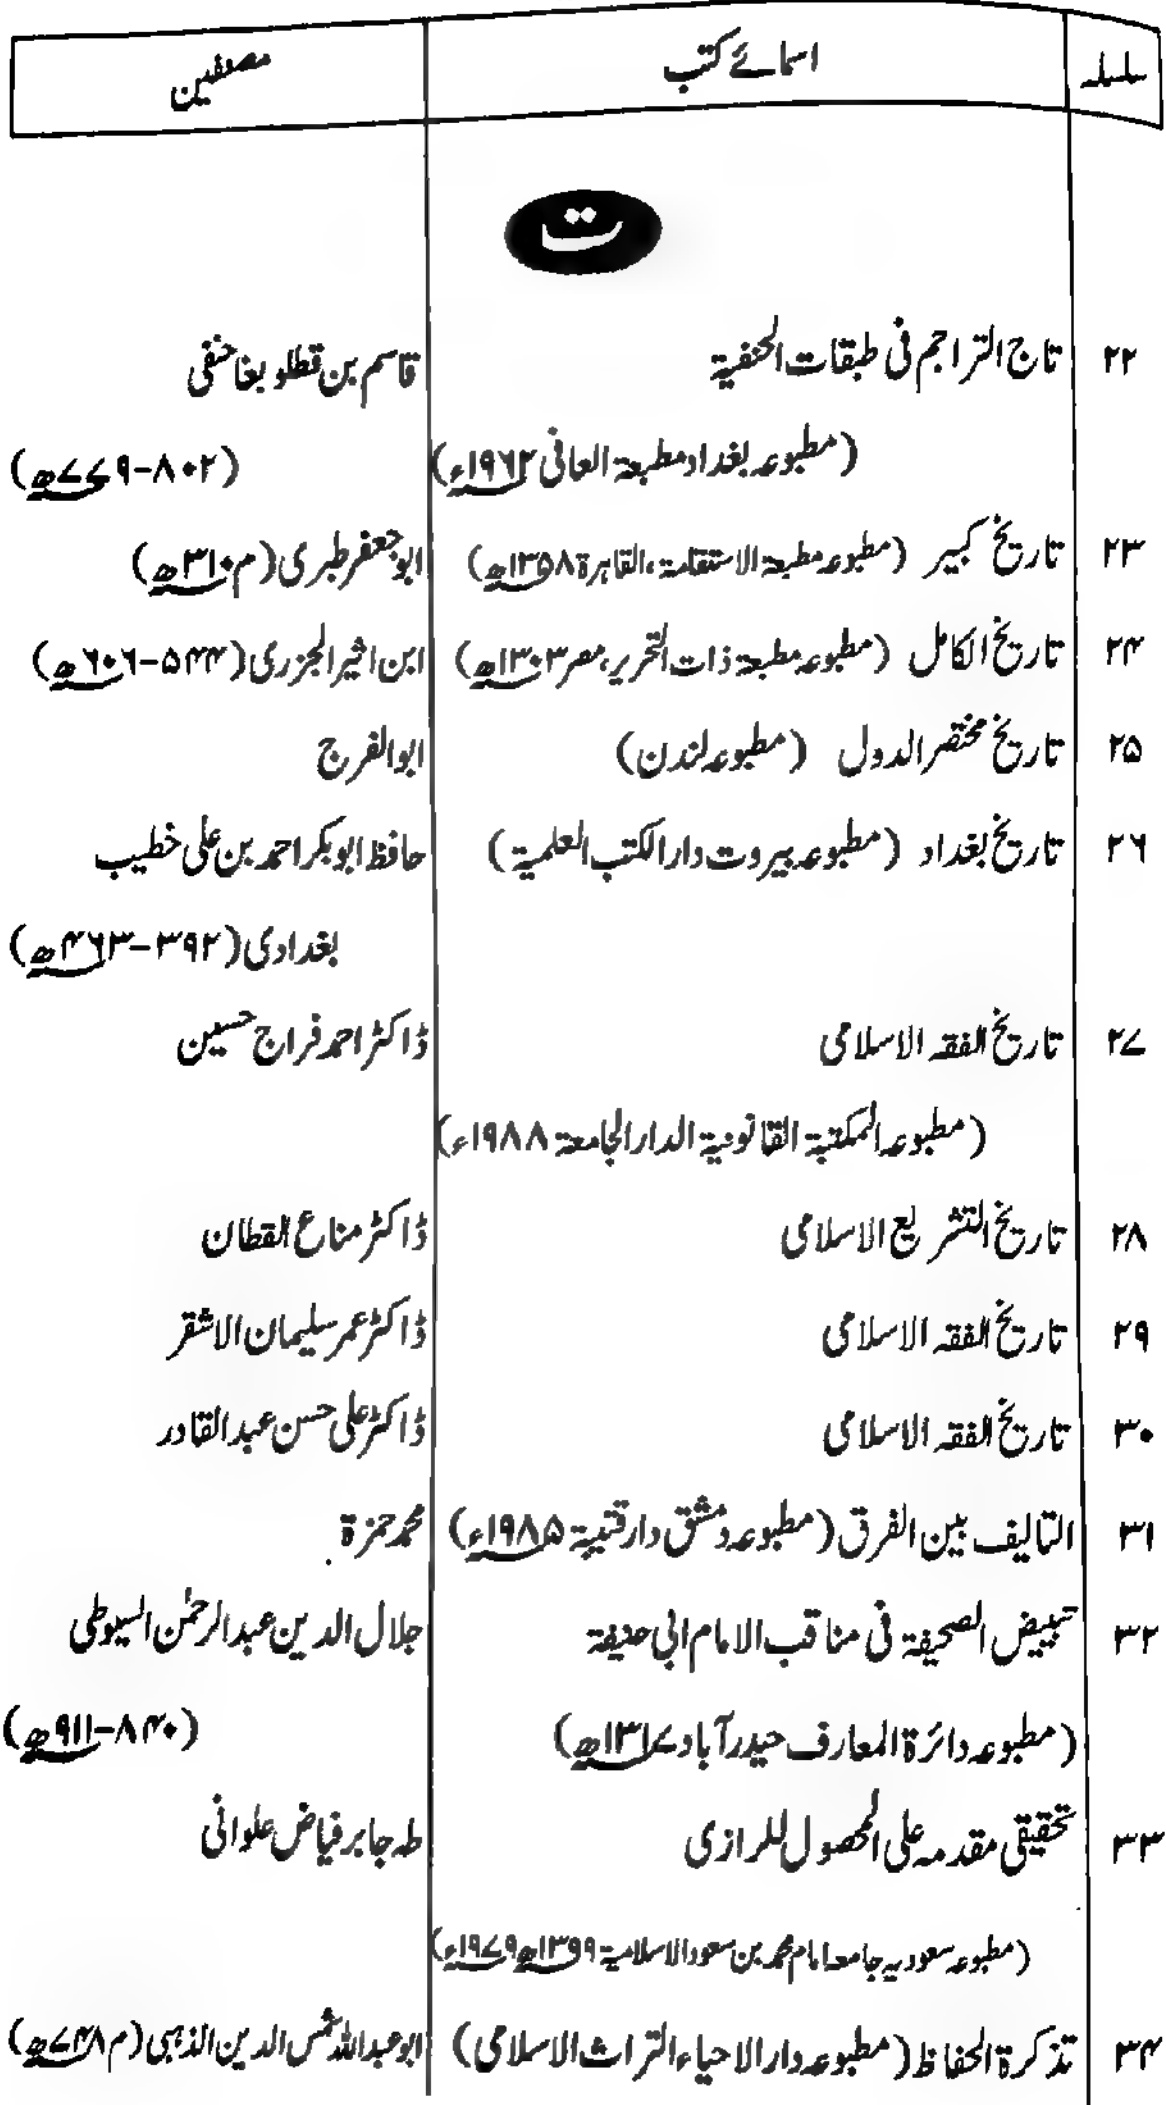 سلسلہ اسمائے کتب مصنفین
ت
۲۲ تاج التراجم فی طبقات الحنفیۃ قاسم بن قطلوبغا حنفی
(مطبوعہ بغداد مطبعۃ العانی ۱۹۶۲ء) (۸۰۲-۷۷۹ھ)
۲۳ تاریخ کبیر (مطبوعہ مطبعۃ الاستقامۃ، القاہرۃ ۱۳۵۸ھ) ابوجعفر طبری (م ۳۱۰ھ)
۲۴ تاریخ الکامل (مطبوعہ مطبعۃ ذات التحریر، مصر ۱۳۰۳ھ) ابن اثیر الجزری (۵۴۴-۶۰۶ھ)
۲۵ تاریخ مختصر الدول (مطبوعہ لندن) ابوالفرج
۲۶ تاریخ بغداد (مطبوعہ بیروت دارالکتب العلمیۃ) حافظ ابوبکر احمد بن علی خطیب
بغدادی (۳۹۲-۴۶۳ھ)
۲۷ تاریخ الفقہ الاسلامی ڈاکٹر احمد فراج حسین
(مطبوعہ المکتبۃ القانونیۃ الدار الجامعۃ ۱۹۸۸ء)
۲۸ تاریخ التشریع الاسلامی ڈاکٹر مناع القطان
۲۹ تاریخ الفقہ الاسلامی ڈاکٹر عمر سلیمان الاشقر
۳۰ تاریخ الفقہ الاسلامی ڈاکٹر علی حسن عبدالقادر
۳۱ التالیف بین الفرق (مطبوعہ دمشق دار قتیبۃ ۱۹۸۵ء) محمد حمزۃ
۳۲ تبییض الصحیفۃ فی مناقب الامام ابی حنیفۃ جلال الدین عبدالرحمٰن السیوطی
(مطبوعہ دائرۃ المعارف حیدرآباد ۱۳۱۷ھ) (۸۴۰-۹۱۱ھ)
۳۳ تحقیقی مقدمہ علی المحصول للرازی طہ جابر فیاض علوانی
(مطبوعہ سعودیہ جامعۃ امام محمد بن سعود الاسلامیۃ ۱۳۹۹ھ ۱۹۷۹ء)
۳۴ تذکرۃ الحفاظ (مطبوعہ دارالاحیاء التراث الاسلامی) ابوعبداللہ شمس الدین الذہبی (م ۷۴۸ھ)